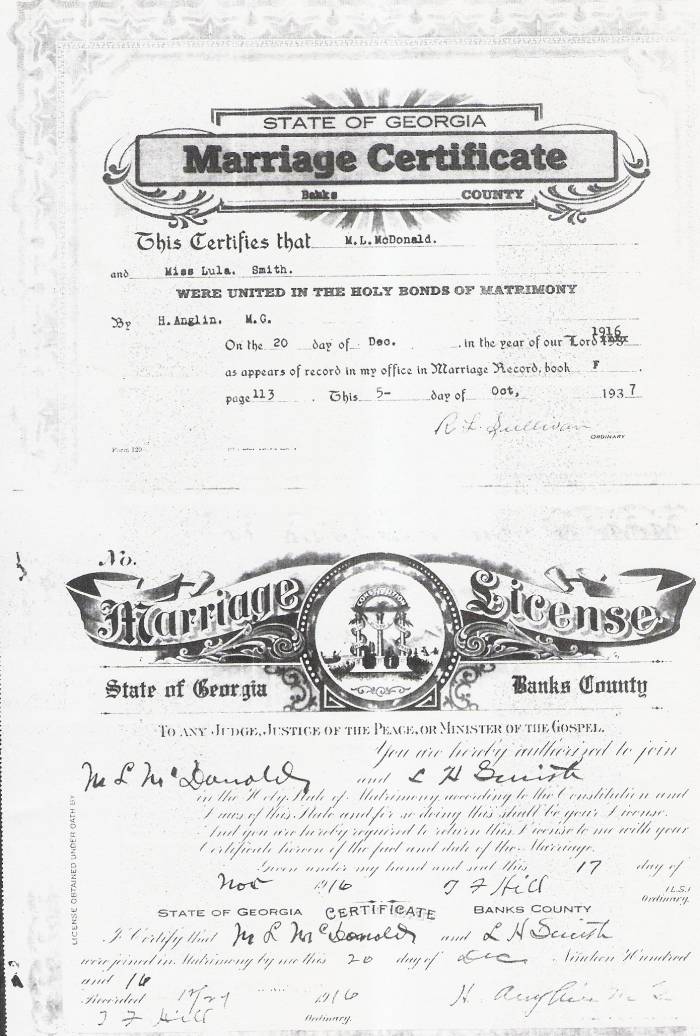 STATE OF GEORGIA
Marriage Certificate
Banks COUNTY
This Certifies that M.L.McDonald.
and Miss Lula. Smith.
WERE UNITED IN THE HOLY BONDS OF MATRIMONY
By H.Anglin. M.G.
1916
On the 20 day of Dec. in the year of our Lord 193
as appears of record in my office in Marriage Record, book F.
page 113. This 5- day of Oct, 1937
R L Sullivan
ORDINARY
Form 120
No.
Marriage License
CONSTITUTION
State of Georgia Banks County
TO ANY JUDGE, JUSTICE OF THE PEACE, OR MINISTER OF THE GOSPEL.
You are hereby authorized to join
M L McDonald and L H Smith
in the Holy State of Matrimony according to the Constitution and
Laws of this State and for so doing this shall be your License.
And you are hereby required to return this License to me with your
Certificate hereon of the fact and date of the Marriage.
Given under my hand and seal this 17 day of
Nov 1916 T F Hill (L.S.)
Ordinary.
LICENSE OBTAINED UNDER OATH BY
STATE OF GEORGIA CERTIFICATE BANKS COUNTY
I Certify that M L McDonald and L H Smith
were joined in Matrimony by me this 20 day of Dec Nineteen Hundred
and 16 H. Anglin M G
Recorded 12/29 1916
T F Hill Ordinary.